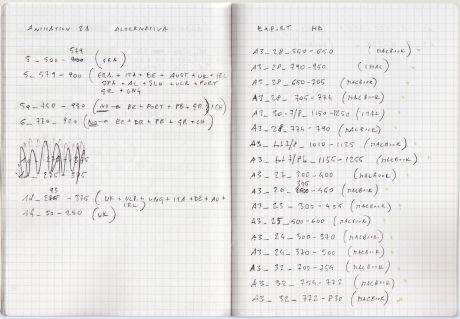 ANIMATION 2A ALTERNATIVA
579
5_500-900 (FRA)
5_579-900 (FRA + ITA + BE + AUST + UK + IRL
SPA + AL + SLO UCR + PORT
GR + UNG
5a_750-930 (NO → BE + PORT + PB + GR) + CH
6_770-920 (NO → BE + DE + PB + GR + CH
275-375
93
(UK + UCR + UNG + ITA + DE + AU +
IRL)
14_50-250 (UK)
EXPORT HD
A3_28_550-650 (MACBOOK)
A3_28_790-950 (IMAC)
A3_28_650-705 (MACBOOK)
A3_28_705-774 (MACBOOK)
A3_30-7/8_1150-1250 (IMAC)
A3_28_774-790 (MACBOOK)
1010-1125 (MACBOOK)
1155-1255 (MACBOOK)
A3_23_300-400 (MACBOOK)
395
A3_20_ -460 (MACBOOK)
A3_23_300-455 (MACBOOK)
A3_25_500-600 (MACBOOK)
A3_24_300-370 (MACBOOK)
A3_24_370-500 (MACBOOK)
A3_32_700-754 (MACBOOK)
A3_32_754-772 (MACBOOK)
A3_32_772-830 (MACBOOK)